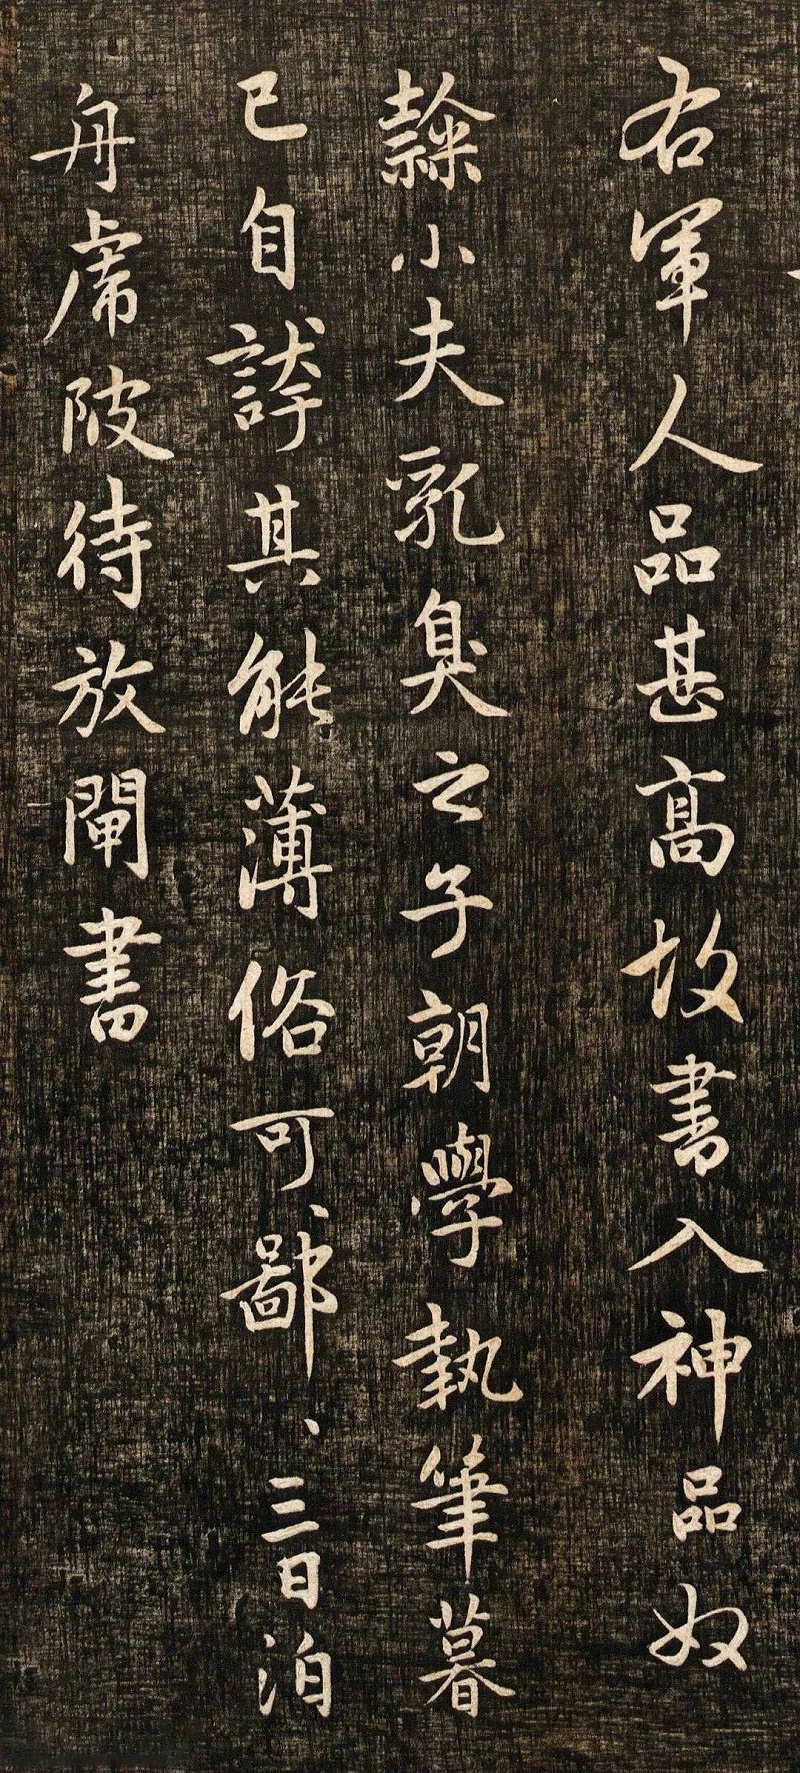 右軍人品甚高故書入神品奴
隸小夫乳臭之子朝學執筆暮
已自誇其能薄俗可、鄙、三日泊
舟虎陂待放閘書